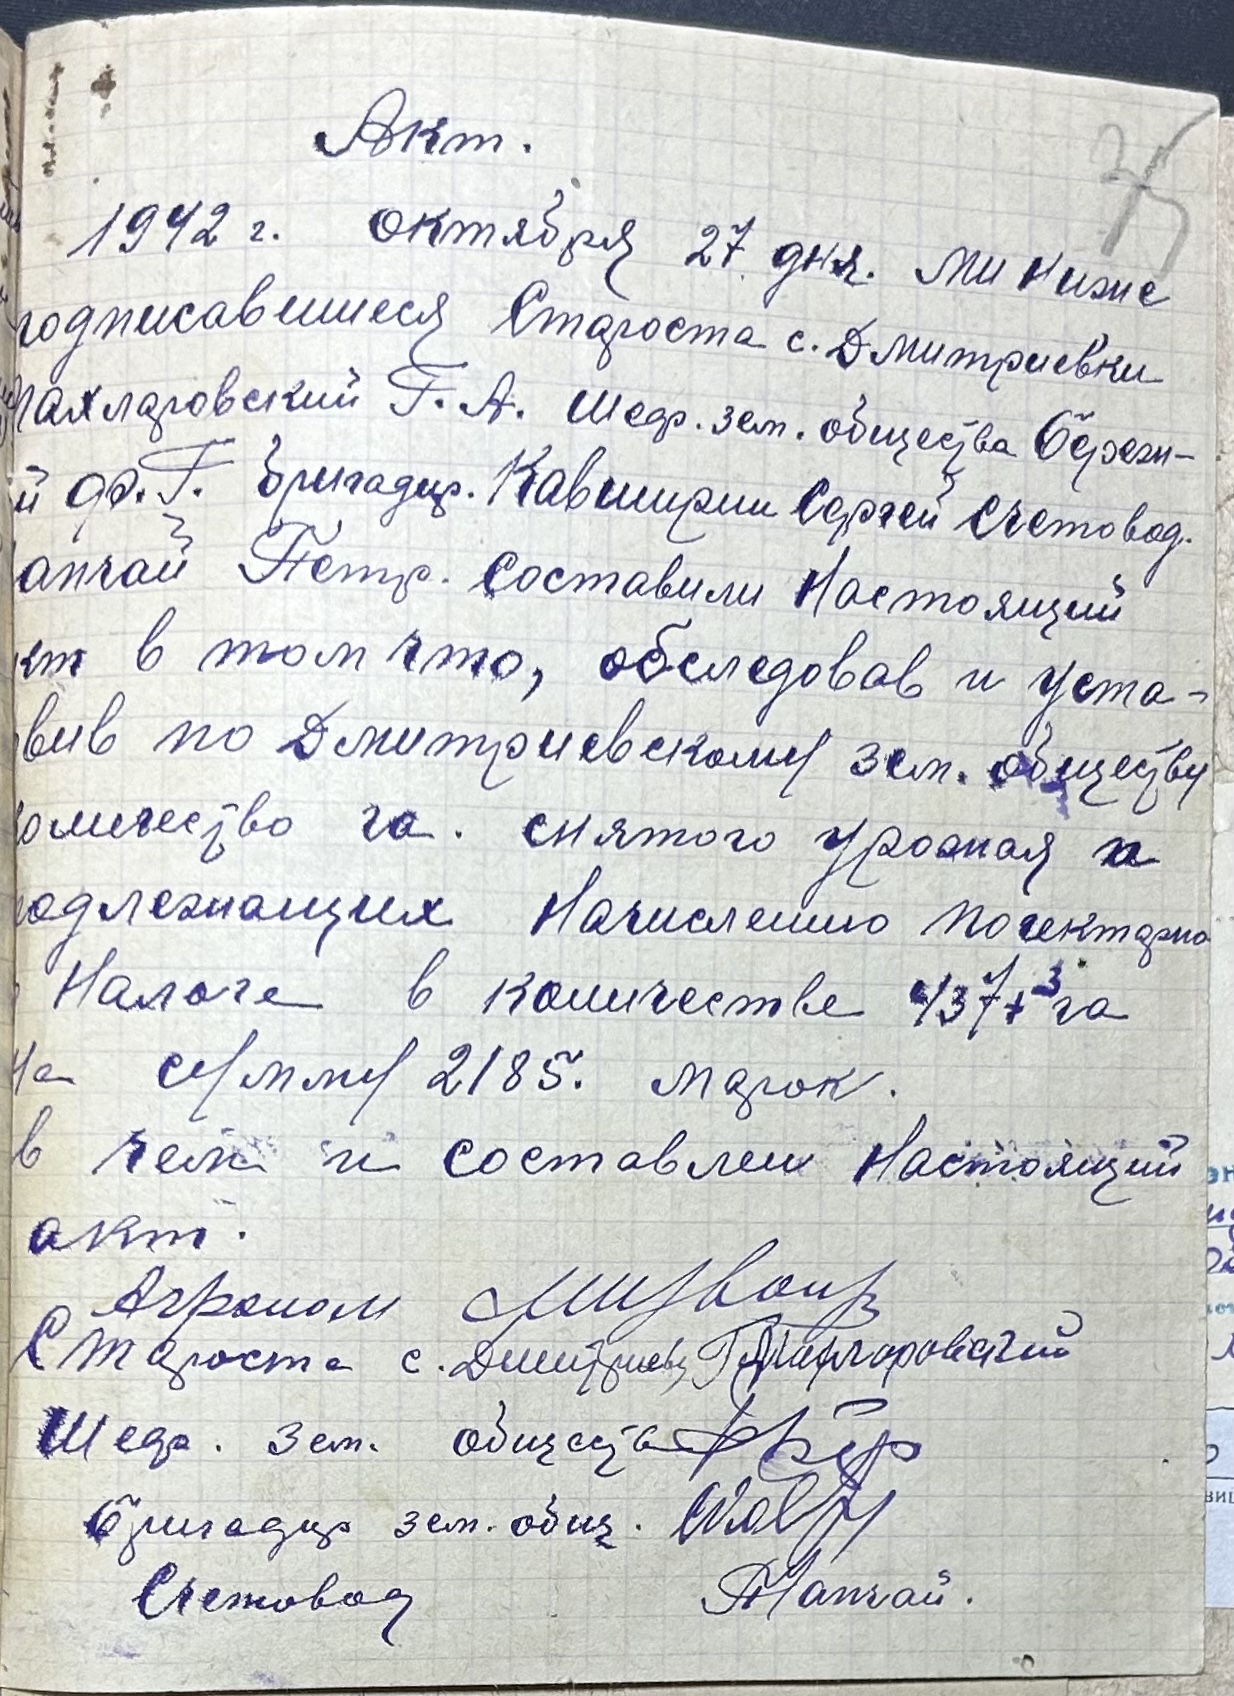 Акт.
1942 г. октября 27 дня. Ми ниже
подписавшиеся Староста с. Дмитриевки
Г. А. Шеф. зем. общества Бережн-
й Ф. Г. бригадир. Кавширин Сергей Счетовод.
апчай Петр. Составили Настоящий
кт в том что, обследовав и уста-
вив по Дмитриевскому зем. обществу
количество га. снятого урожая и
подлежащих Начислению погектарно
Налога в количестве 437+3 га
на сумму 2185. марок.
в чем и составлен Настоящий
акт.
Агроном
Староста с.
Шеф. зем. обществ
бригадир зем. общ.
Счетовод Тапчай.